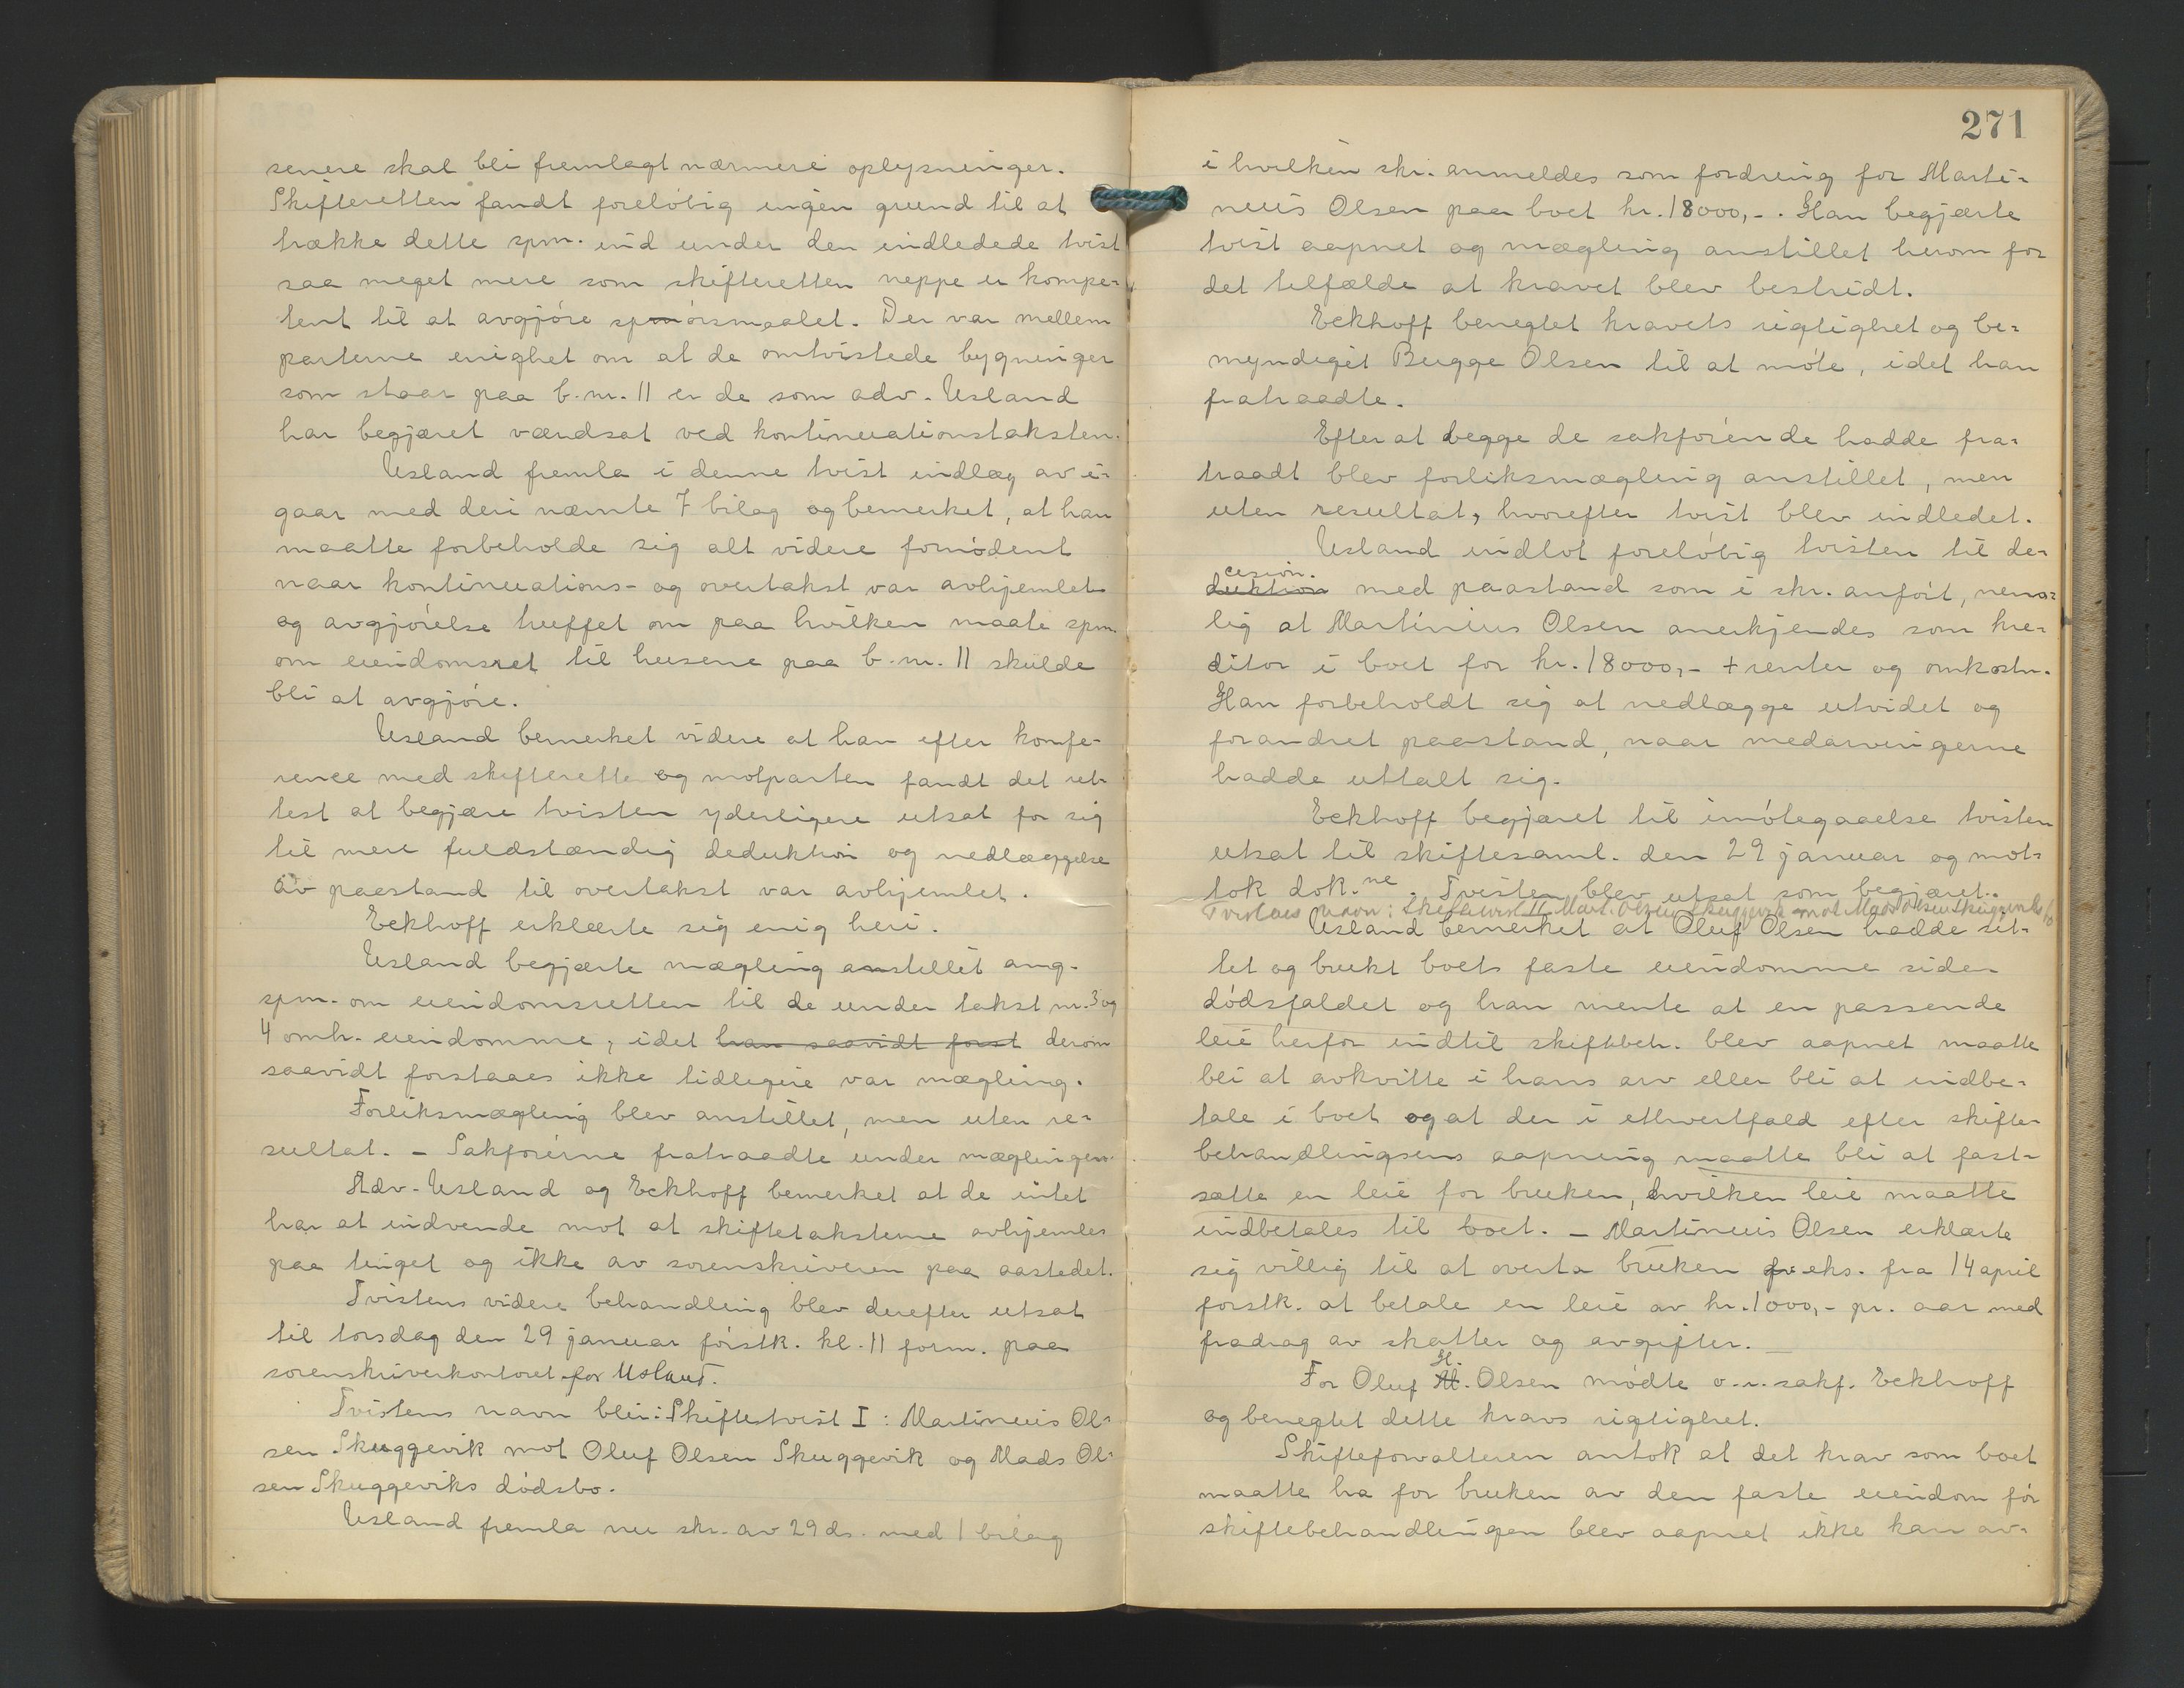 senere skal bli fremlagt nærmere oplysninger.
Skifteretten fandt foreløbig ingen grund til at
trække dette spm. ind under den indledede tvist
saa meget mere som skifteretten neppe er kompe-
tent til at avgjøre spørsmaalet. Der var mellem
parterne enighet om at de omtvistede bygninger
som staar paa b.nr. 11 er de som adv. Usland
har begjæret værdsat ved kontinuationstaksten.
Usland fremla i denne tvist indlæg av i-
gaar med deri nævnte 7 bilag og bemerket, at han
maatte forbeholde sig alt videre fornødent
naar kontinuations- og overtakst var avhjemlet
og avgjørelse truffet om paa hvilken maate spm.
om eiendomsret til husene paa b.nr. 11 skulde
bli at avgjøre.
Usland bemerket videre at han efter konfe-
rence med skifterette og motparten fandt det ret-
test at begjære tvisten yderligere utsat for sig
til mere fuldstændig deduktion og nedlæggelse
av paastand til overtakst var avhjemlet.
Eckhoff erklærte sig enig heri.
Usland begjærte mægling anstillet ang.
spm. om eiendomsretten til de under takst nr. 3 og
4 omh. eiendomme, idet han saavidt forst derom
saavidt forstaaes ikke tidligere var mægling.
Forliksmægling blev anstillet, men uten re-
sultat. - Sakførerne fratraadte under mæglingen.
Adv. Usland og Eckhoff bemerket at de intet
har at indvende mot at skiftetaksterne avhjemles
paa tinget og ikke av sorenskriveren paa aastedet.
Tvistens videre behandling blev derefter utsat
til torsdag den 29 januar førstk. kl. 11 form. paa
sorenskriverkontoret for Usland.
Tvistens navn blir: Skiftetvist I: Martinius Ol-
sen Skuggevik mot Oluf Olsen Skuggevik og Mads Ol-
sen Skuggeviks dødsbo.
Usland fremla nu skr. av 29 ds. med 1 bilag
271
i hvilken skr. anmeldes som fordring for Marti-
nius Olsen paa boet kr. 18000,-. Han begjærte
tvist aapnet og mægling anstillet herom for
det tilfælde at kravet blev bestridt.
Eckhoff benegtet kravets rigtighet og be-
myndiget Bugge Olsen til at møte, idet han
fratraadte.
Efter at begge de sakførende hadde fra-
traadt blev forliksmægling anstillet, men
uten resultat, hvorefter tvist blev indledet.
Usland indlot foreløbig tvisten til de-
cision.
duktion med paastand som i skr. anført, nem-
lig at Martinius Olsen anerkjendes som kre-
ditor i boet for kr. 18000,- + renter og omkostn.
Han forbeholdt sig at nedlægge utvidet og
forandret paastand, naar medarvingerne
hadde uttalt sig.
Eckhoff begjæret til imøtegaaelse tvisten
utsat til skiftesaml. den 29 januar og mot-
tok dok.ne. Tvisten blev utsat som begjæret.
Tvistens navn: Skiftetvist II Mart. Olsen Skuggevik mot Mads Olsen Skuggeviks bo
Usland bemerket at Oluf Olsen hadde sit-
tet og brukt boets faste eiendomme siden
dødsfaldet og han mente at en passende
leie herfor indtil skiftebeh. blev aapnet maatte
bli at avkvitte i hans arv eller bli at indbe-
tale i boet og at der i ethvertfald efter skifte-
behandlingens aapning maatte bli at fast-
sætte en leie for bruken, hvilken leie maatte
indbetales til boet. - Martinius Olsen erklærte
sig villig til at overta bruken f.eks. fra 14 april
førstk. at betale en leie av kr. 1000,- pr. aar med
fradrag av skatter og avgifter.
For Oluf H. Olsen mødte o.r.sakf. Eckhoff
og benegtet dette kravs rigtighet.
Skifteforvalteren antok at det krav som boet
maatte ha for bruken av den faste eiendom før
skiftebehandlingen blev aapnet ikke kan av-